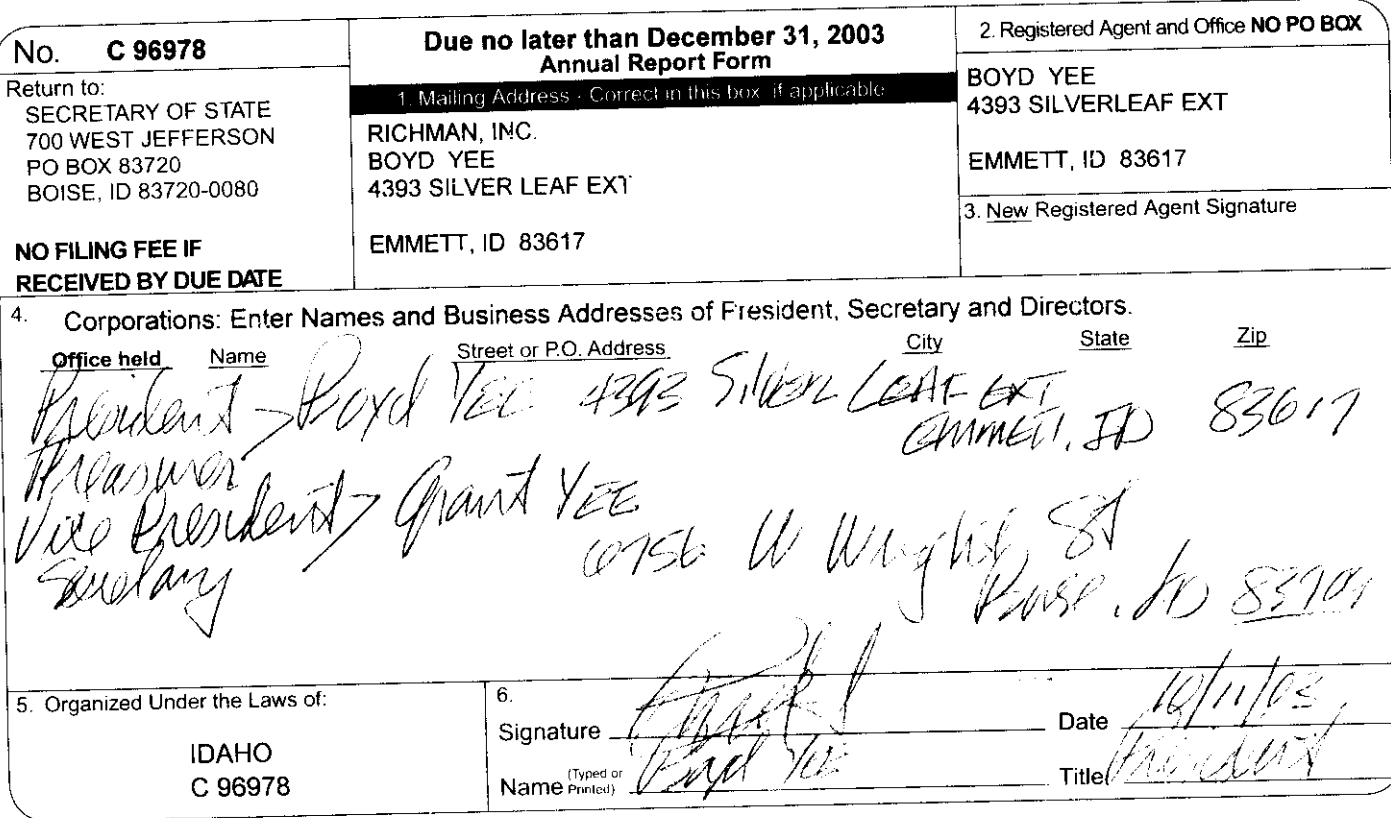 No. C 96978
Return to:
SECRETARY OF STATE
700 WEST JEFFERSON
PO BOX 83720
BOISE, ID 83720-0080
NO FILING FEE IF
RECEIVED BY DUE DATE
Due no later than December 31, 2003
Annual Report Form
1. Mailing Address - Correct in this box, if applicable
RICHMAN, INC.
BOYD YEE
4393 SILVER LEAF EXT
EMMETT, ID 83617
2. Registered Agent and Office NO PO BOX
BOYD YEE
4393 SILVERLEAF EXT
EMMETT, ID 83617
3. New Registered Agent Signature
4. Corporations: Enter Names and Business Addresses of President, Secretary and Directors.
Office held Name Street or P.O. Address City State Zip
President > Boyd YEE 4393 SILVER LEAF EXT
EMMETT, ID 83617
Treasurer
Vice President > Grant YEE
6756 W Wright St
Secretary
Boise, ID
5. Organized Under the Laws of:
IDAHO
C 96978
6.
Signature
Date 10/11/03
Name (Typed or Printed) Boyd YEE
Title President